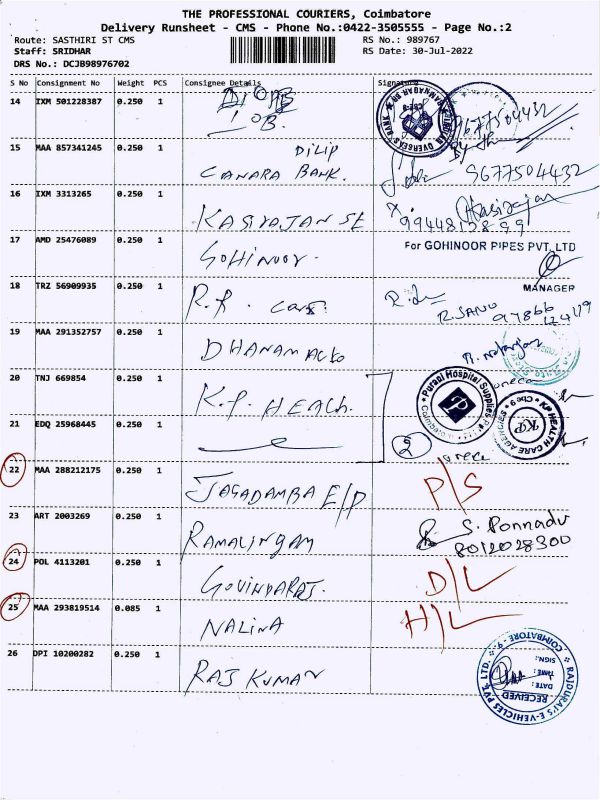 THE PROFESSIONAL COURIERS, Coimbatore
Delivery Runsheet - CMS - Phone No.:0422-3505555 - Page No.:2
Route: SASTHIRI ST CMS
RS No.: 989767
Staff: SRIDHAR
RS Date: 30-Jul-2022
DRS No.: DCJB98976702
S No Consignment No Weight PCS Consignee Details Signature
14 IXM 501228387 0.250 1 IOB
INDIAN OVERSEAS BANK
9677504432
15 MAA 857341245 0.250 1 DILIP
CANARA BANK. 9677504432
16 IXM 3313265 0.250 1 KASIRAJAN SE Kasirajan
9944812899
17 AMD 25476089 0.250 1 GOHINOOR.
For GOHINOOR PIPES PVT. LTD
MANAGER
18 TRZ 56909935 0.250 1 R.R.
R. SANU
19 MAA 291352757 0.250 1
20 TNJ 669854 0.250 1 K.P. HEALTH.
Purani Hospital Supplies
KP HEALTH CARE AGENCIES
KP
21 EDQ 25968445 0.250 1 2
22 MAA 288212175 0.250 1 JAGADAMBA E/P P/S
23 ART 2003269 0.250 1 RAMALINGAM S. Ponnadu
8012028300
24 POL 4113201 0.250 1 GOVINDARAJ. D/L
25 MAA 293819514 0.085 1 NALINA H/L
26 DPI 10200282 0.250 1 RAJ KUMAN
RAJDURAI'S E-VEHICLES PVT. LTD.
COIMBATORE - 9
SIGN.:
TIME:
DATE:
RECEIVED